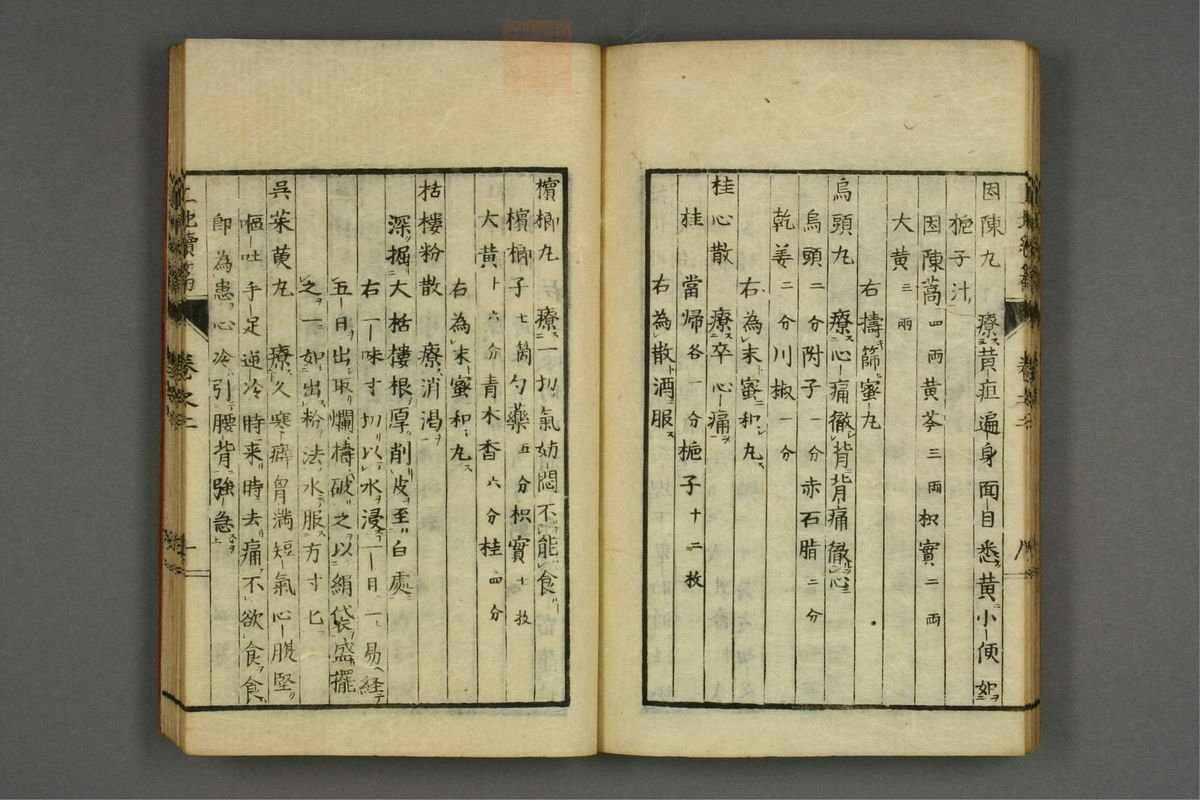 因陳丸 療黄疸遍身面目悉黄小便如
梔子汁
因陳蒿四両黄芩三両枳實二両
大黄三両
右擣篩蜜丸
烏頭丸 療心痛徹背背痛徹心
烏頭二分附子一分赤石脂二分
乾姜二分川椒一分
右為末蜜和丸
桂心散 療卒心痛
桂當帰各一分梔子十二枚
右為散酒服
檳榔丸 療一切氣妨悶不能食
檳榔子七箇勺藥五分枳實七枚
大黄十六分青木香六分桂四分
右為末蜜和丸
枯樓粉散 療消渇
深掘大枯樓根厚削皮至白處
右一味寸切以水浸一日一易経
五日出取爛擣破之以絹袋盛擺
之一如出粉法水服方寸匕
呉茱萸丸 療久寒癖胷満短氣心腹堅
嘔吐手足逆冷時来時去痛不欲食食
即為患心冷引腰背強急
巻之二